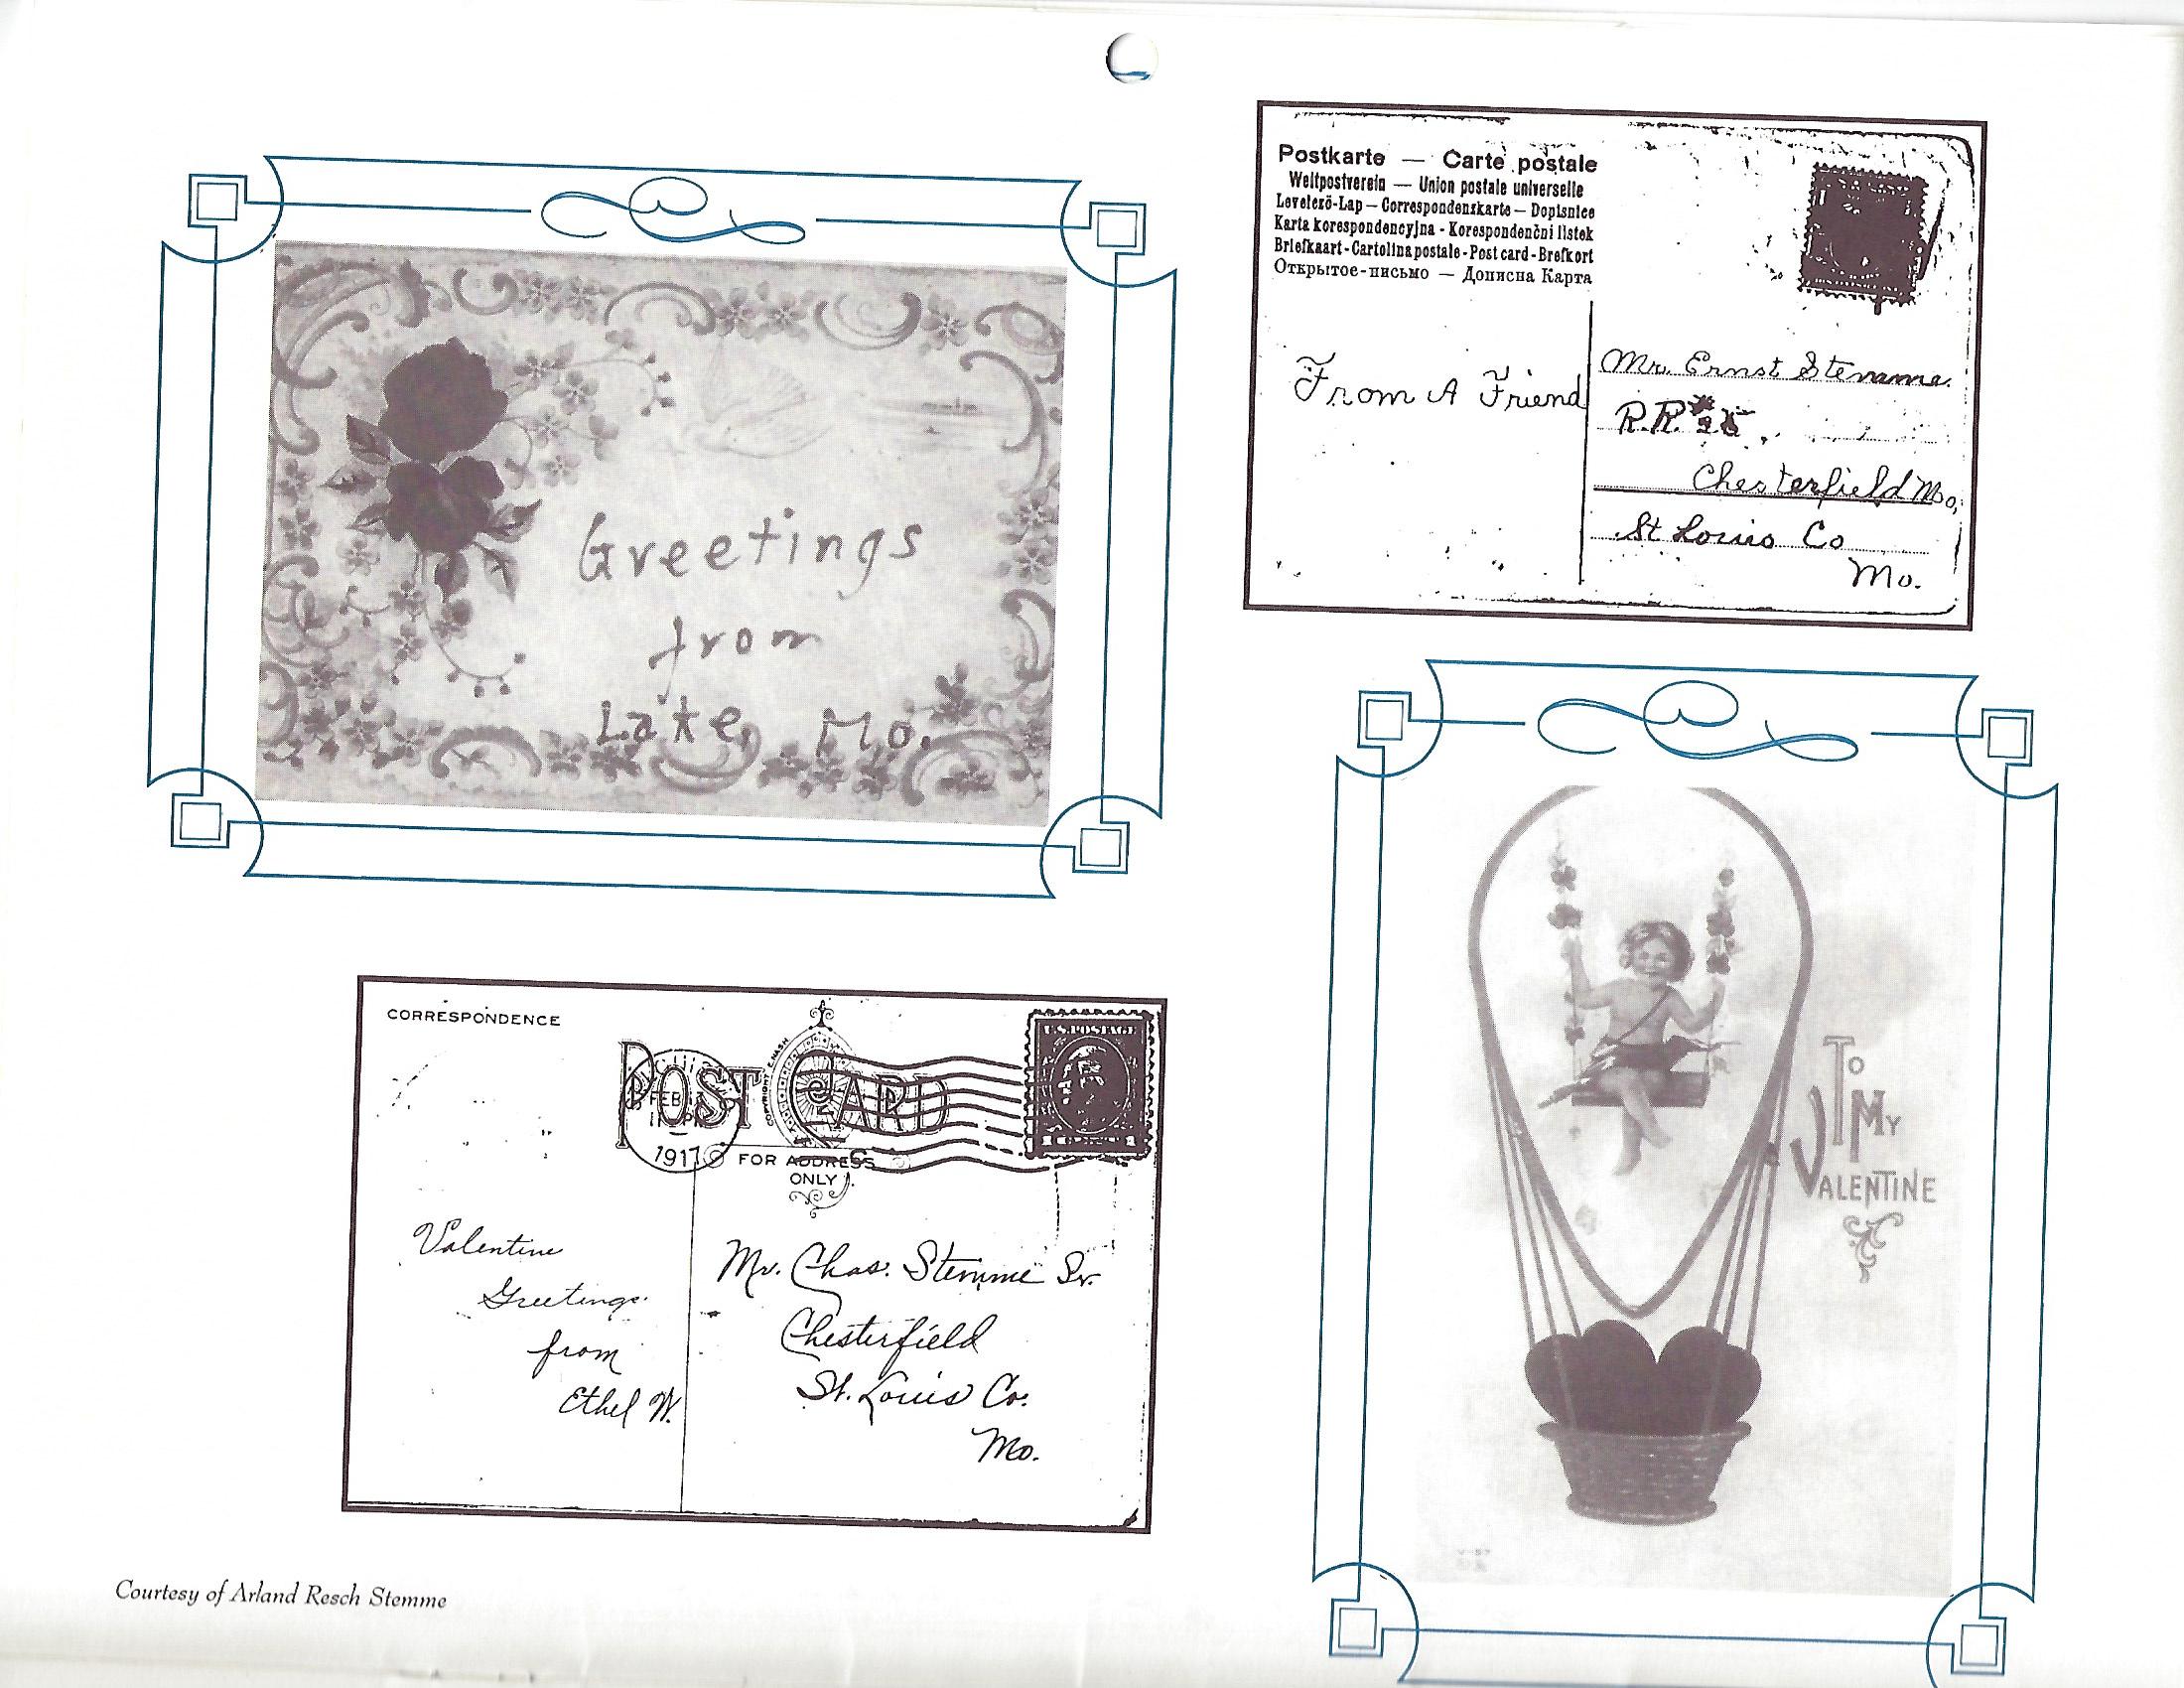 Greetings
from
Lake, Mo.
Postkarte — Carte postale
Weltpostverein — Union postale universelle
Levelező-Lap — Correspondenzkarte — Dopisnice
Karta korespondencyjna - Korespondenční lístek
Briefkaart - Cartolina postale - Post card - Brefkort
Открытое-письмо — Дописна Карта
From A Friend
Mr. Ernst Stemme
R.R.
Chesterfield Mo,
St Louis Co
Mo.
CORRESPONDENCE
POST CARD
COPYRIGHT E. NASH
FEB
1917
FOR ADDRESS
ONLY
U.S. POSTAGE
Valentine
Greetings
from
Ethel W.
Mr. Chas. Stemme Sr.
Chesterfield
St. Louis Co.
Mo.
To
My
Valentine
Courtesy of Arland Resch Stemme